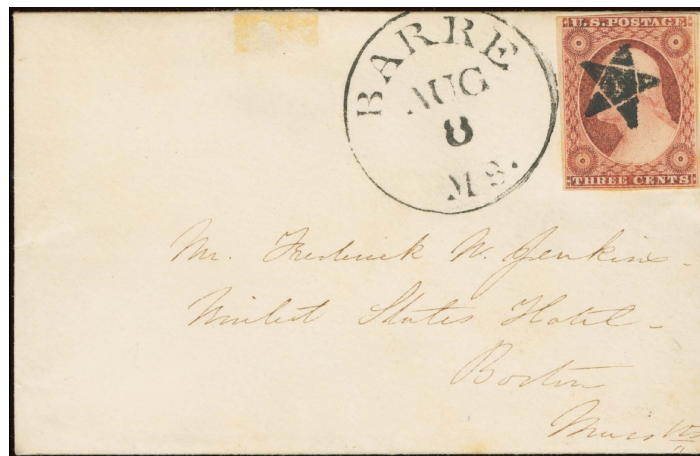 BARRE
AUG
8
MS.
U.S. POSTAGE
THREE CENTS
Mr. Frederick W. Jenkins
United States Hotel
Boston